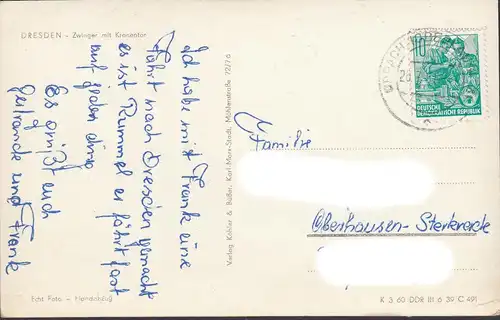 DRESDEN - Zwinger mit Kronentor
Ich habe mit Frank eine
Fahrt nach Dresden gemacht
es ist Rummel er fährt fast
auf jeden
Es grüßt euch
Gertraude und Frank
Echt Foto - Handabzug
Verlag Köhler & Büßer, Karl-Marx-Stadt, Mühlenstraße 72/76
10
5
DEUTSCHE
DEMOKRATISCHE REPUBLIK
Familie
Oberhausen-Sterkrade
K 3 60 DDR III 6 39 C 491